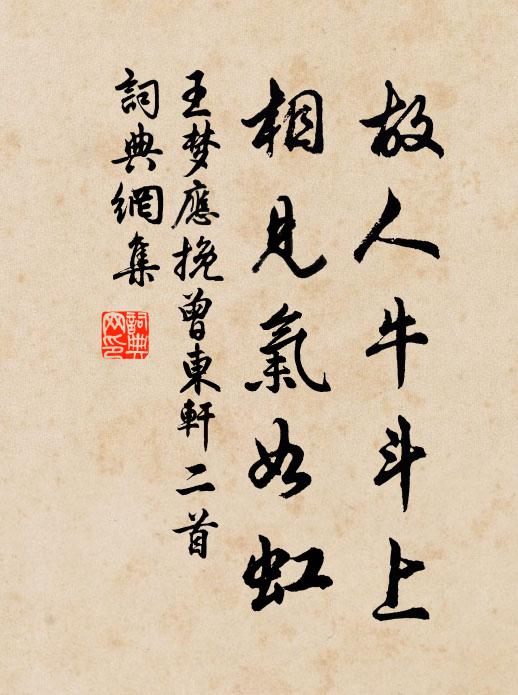 故人牛斗上
相見氣如虹
王梦應挽曾東軒二首
詞典網集
詞典网印